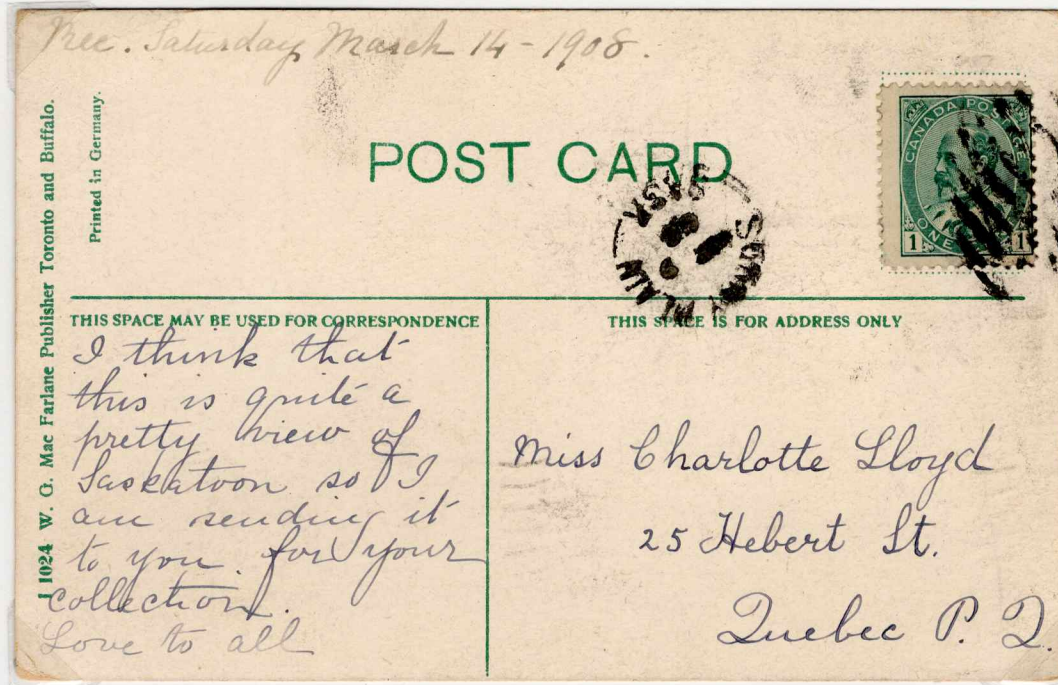 Rec. Saturday March 14 - 1908.
J 1024 W. G. Mac Farlane Publisher Toronto and Buffalo.
Printed in Germany.
POST CARD
CANADA POSTAGE
1 ONE 1
SASK
PLAIN
THIS SPACE MAY BE USED FOR CORRESPONDENCE
I think that
this is quite a
pretty view of
Saskatoon so I
am sending it
to you for your
collection.
Love to all
THIS SPACE IS FOR ADDRESS ONLY
Miss Charlotte Lloyd
25 Hebert St.
Quebec P. Q.